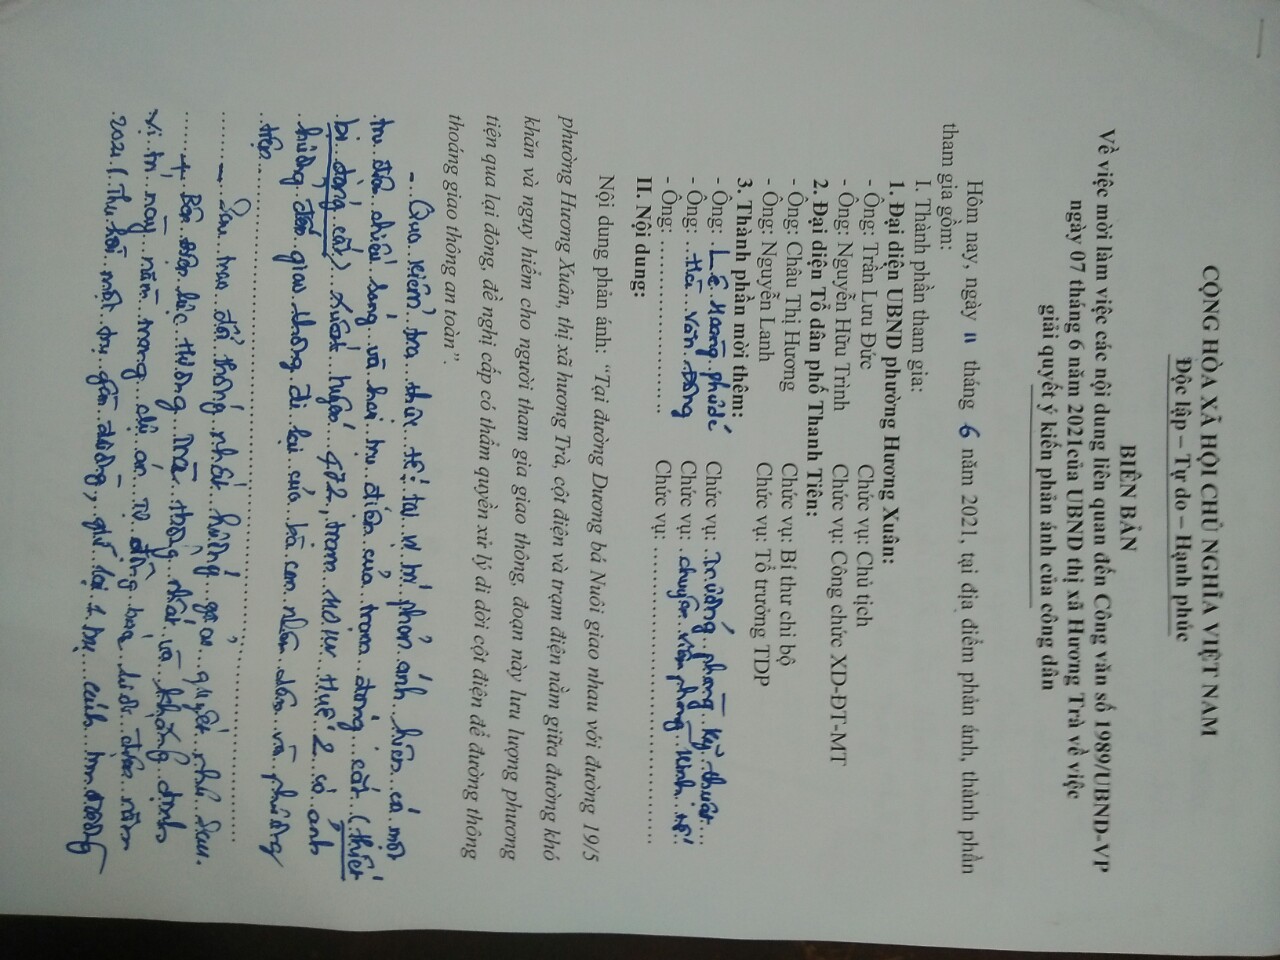 CỘNG HÒA XÃ HỘI CHỦ NGHĨA VIỆT NAM
Độc lập – Tự do – Hạnh phúc
BIÊN BẢN
Về việc mời làm việc các nội dung liên quan đến Công văn số 1989/UBND-VP
ngày 07 tháng 6 năm 2021của UBND thị xã Hương Trà về việc
giải quyết ý kiến phản ánh của công dân
Hôm nay, ngày 11 tháng 6 năm 2021, tại địa điểm phản ánh, thành phần
tham gia gồm:
I. Thành phần tham gia:
1. Đại diện UBND phường Hương Xuân:
- Ông: Trần Lưu Đức Chức vụ: Chủ tịch
- Ông: Nguyễn Hữu Trinh Chức vụ: Công chức XD-ĐT-MT
2. Đại diện Tổ dân phố Thanh Tiên:
- Ông: Châu Thị Hương Chức vụ: Bí thư chi bộ
- Ông: Nguyễn Lanh Chức vụ: Tổ trưởng TDP
3. Thành phần mời thêm:
- Ông: Lê Hoàng Chức vụ: Trưởng phòng Kỹ thuật
- Ông: Hà Văn Chức vụ: chuyên viên phòng Kinh tế
- Ông: ................ Chức vụ: ................
II. Nội dung:
Nội dung phản ánh: “Tại đường Dương bá Nuôi giao nhau với đường 19/5
phường Hương Xuân, thị xã hương Trà, cột điện và trạm điện nằm giữa đường khó
khăn và nguy hiểm cho người tham gia giao thông, đoạn này lưu lượng phương
tiện qua lại đông, đề nghị cấp có thẩm quyền xử lý di dời cột điện để đường thông
thoáng giao thông an toàn”.
- Qua kiểm tra thực tế: tại vị trí phản ánh hiện có một
trụ điện chiếu sáng và hai trụ điện của trạm đóng cắt (thiết
bị đóng cắt) xuất tuyến 472, trạm 110KV Huế 2 có ảnh
hưởng đến giao thông đi lại của bà con nhân dân và phương
tiện.
- Sau trao đổi thống nhất hướng giải quyết như sau:
+ Bên điện lực Hương Trà thống nhất và khẳng định
vị trí này nằm trong dự án tự động hóa lưới điện năm
2021 (Thu hồi một trụ gần đường, giữ lại 1 trụ cách tim đường